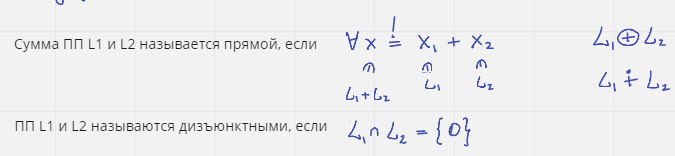 Сумма ПП L1 и L2 называется прямой, если ∀x =! x₁ + x₂ L₁⊕L₂
∩ ∩ ∩
L₁+L₂ L₁ L₂ L₁ ∔ L₂
ПП L1 и L2 называются дизъюнктными, если L₁∩L₂ = {0}